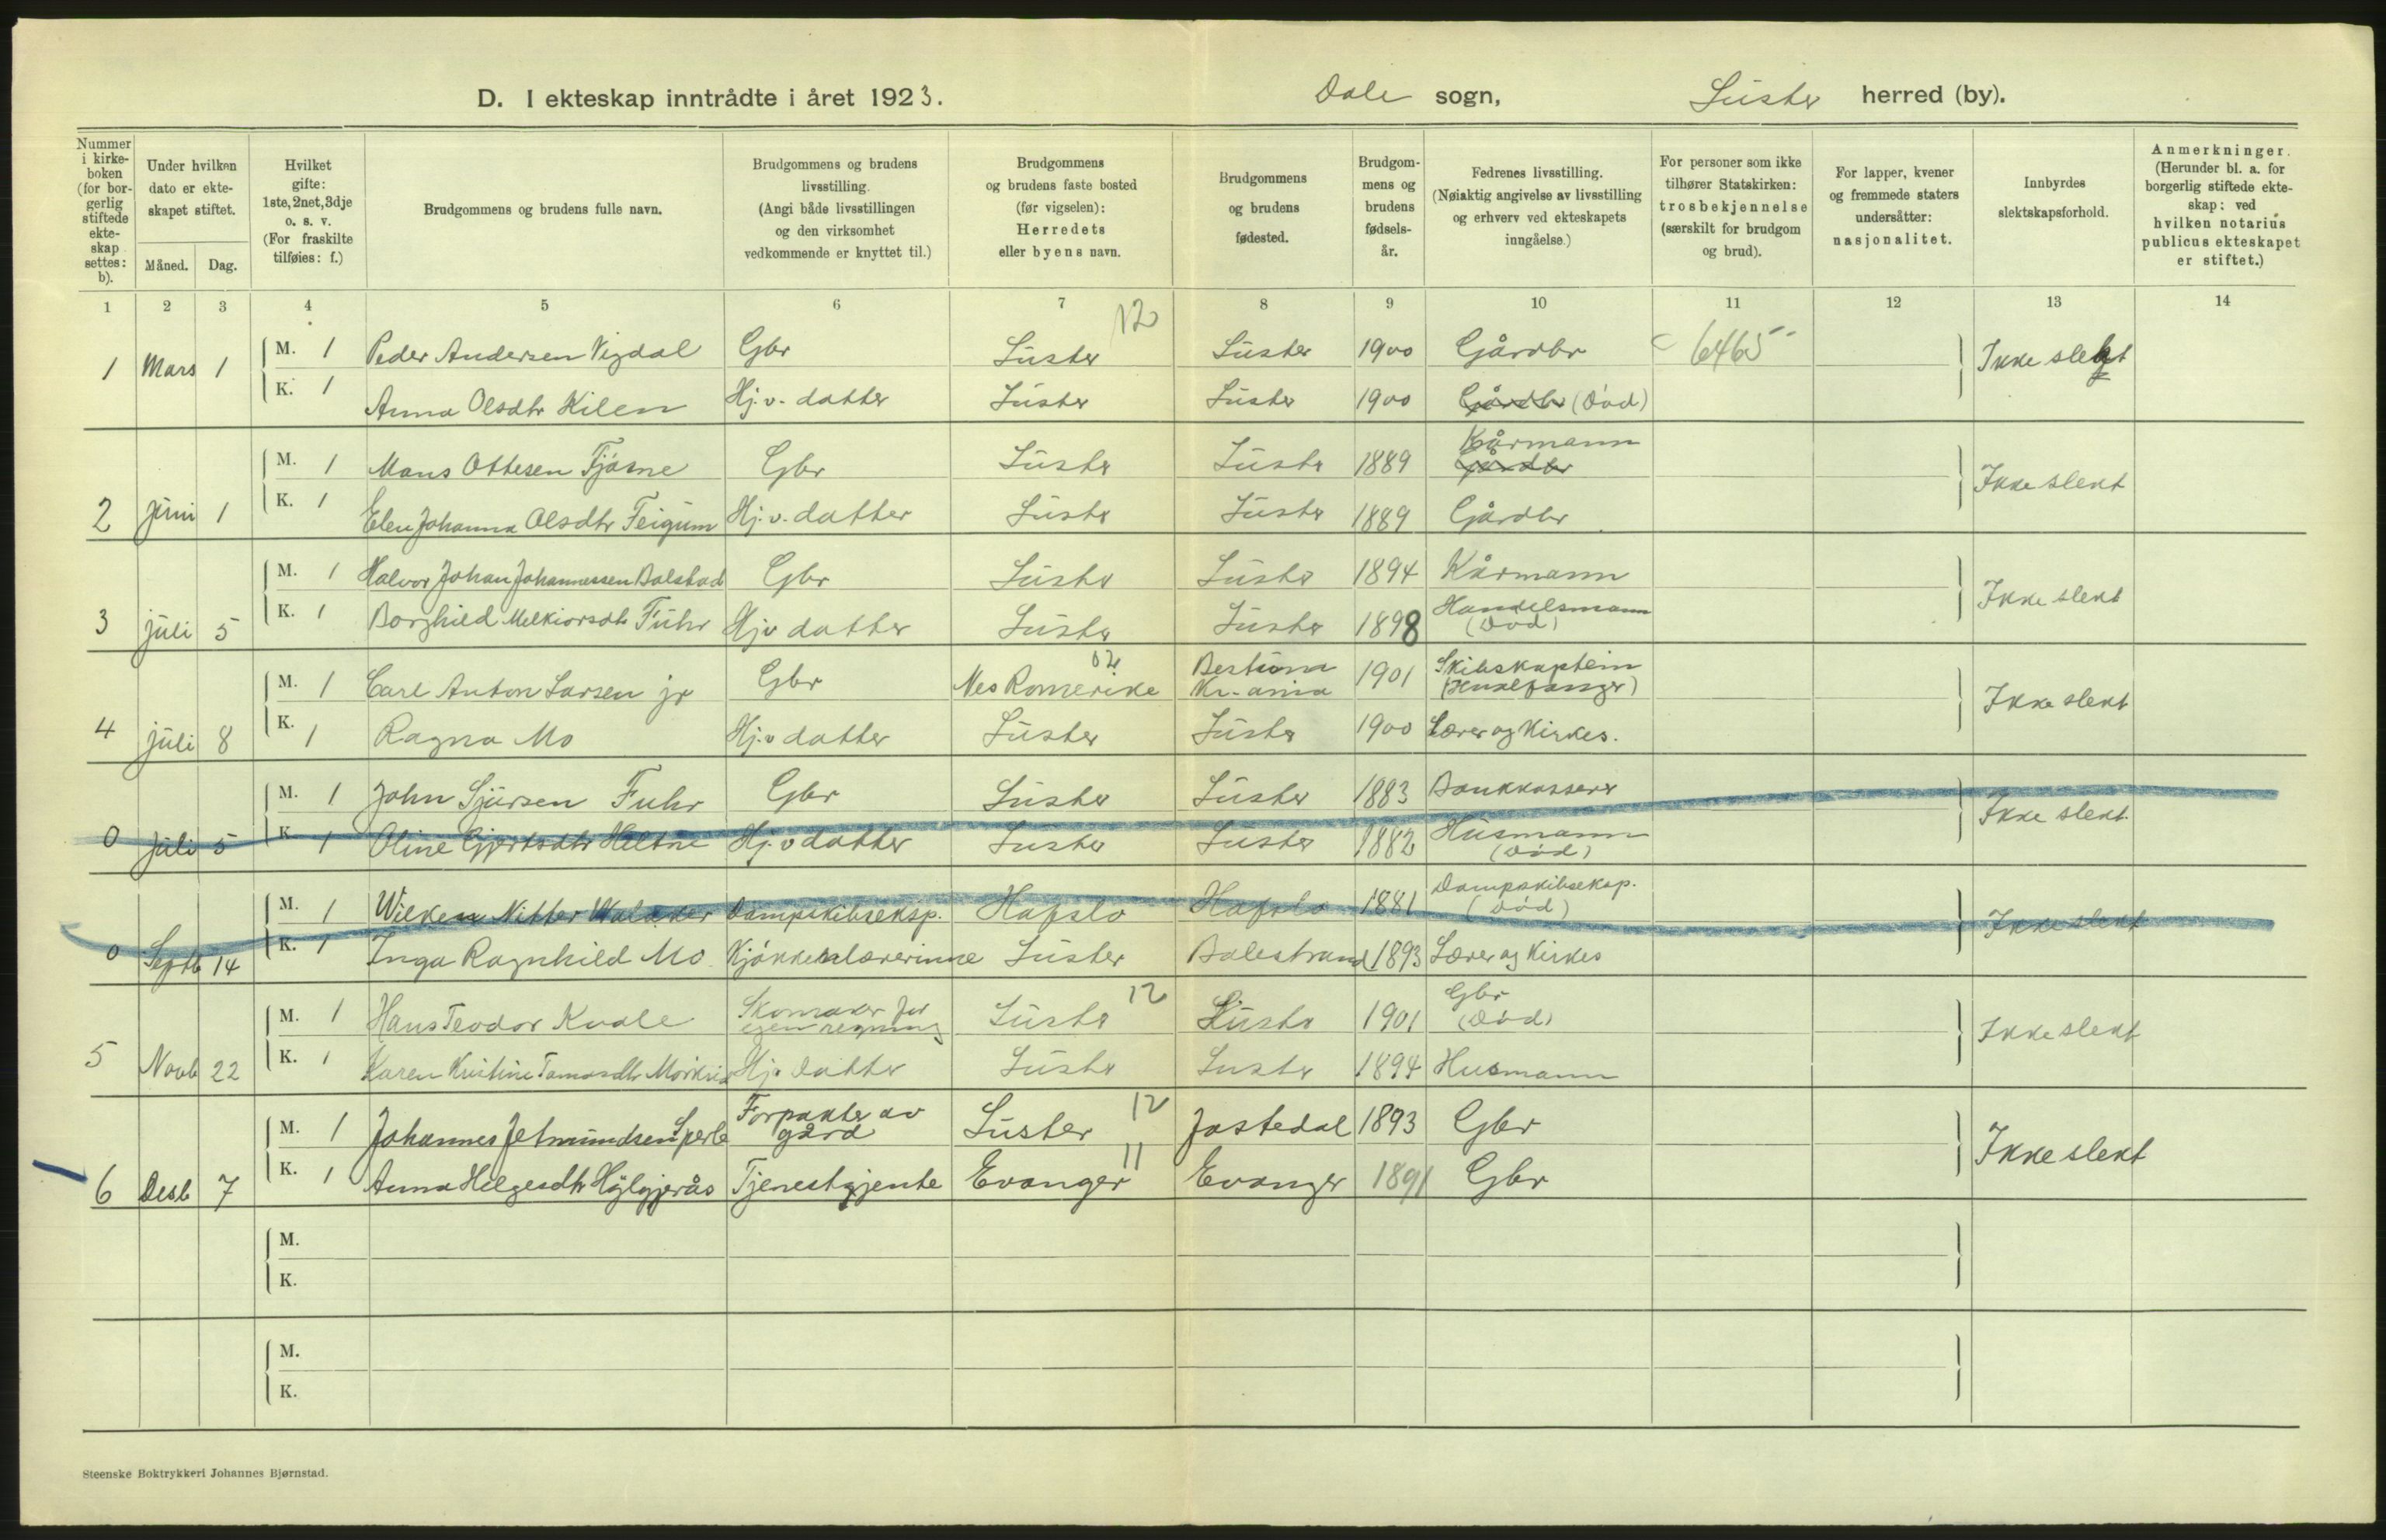 D. I ekteskap inntrådte i året 1923. Dale sogn, Luster herred (by).
Nummer i kirkeboken (for borgerlig stiftede ekteskap settes: b).
Under hvilken dato er ekteskapet stiftet.
Måned. Dag.
Hvilket gifte: 1ste, 2net, 3dje o. s. v. (For fraskilte tilføies: f.)
Brudgommens og brudens fulle navn.
Brudgommens og brudens livsstilling. (Angi både livsstillingen og den virksomhet vedkommende er knyttet til.)
Brudgommens og brudens faste bosted (før vigselen): Herredets eller byens navn.
Brudgommens og brudens fødested.
Brudgommens og brudens fødselsår.
Fedrenes livsstilling. (Nøiaktig angivelse av livsstilling og erhverv ved ekteskapets inngåelse.)
For personer som ikke tilhører Statskirken: trosbekjennelse (særskilt for brudgom og brud).
For lapper, kvener og fremmede staters undersåtter: nasjonalitet.
Innbyrdes slektskapsforhold.
Anmerkninger. (Herunder bl. a. for borgerlig stiftede ekteskap: ved hvilken notarius publicus ekteskapet er stiftet.)
1 2 3 4 5 6 7 8 9 10 11 12 13 14
12
M. 1 Peder Andersen Vigdal Gbr Luster Luster 1900 Gårdbr 6465
1 Mars 1 Ikke slekt
K. 1 Anna Olsdtr Kilen Hj.v. datter Luster Luster 1900 Gårdbr (Død)
Kårmann
M. 1 Mons Ottesen Fjøsne Gbr Luster Luster 1889 Gårdbr
2 Juni 1 Ikke slekt
K. 1 Elen Johanna Olsdtr Feigum Hj.v. datter Luster Luster 1889 Gårdbr
M. 1 Halvor Johan Johannessen Bolstad Gbr Luster Luster 1894 Kårmann
3 Juli 5 Ikke slekt
K. 1 Borghild Melkiorsdtr Fuhr Hj v datter Luster Luster 1898 Handelsmann (Død)
02
M. 1 Carl Anton Larsen jr Gbr Nes Romerike Bestum Kr.ania 1901 Skibskaptein (Hvalfanger)
4 Juli 8 Ikke slekt
K. 1 Ragna Mo Hj.v datter Luster Luster 1900 Lærer og Kirkes.
M. 1 John Sjursen Fuhr Gbr Luster Luster 1883 Bankkasserer
0 Juli 5 Ikke slekt.
K. 1 Oline Gjertsdtr Heltne Hj.v datter Luster Luster 1882 Husmann (Død)
M. 1 Wilken Nitter Walaker Dampskibseksp. Hafslo Hafslo 1881 Dampskibseksp. (Død)
0 Septb 14 Ikke slekt
K. 1 Inga Ragnhild Mo Kjøkkenlærerinne Luster Balestrand 1893 Lærer og Kirkes
12
M. 1 Hans Teodor Kvale Skomaker for egen regning Luster Luster 1901 Gbr (Død)
5 Novb 22 Ikke slekt
K. 1 Karen Kristine Tomasdtr Mørkrid Hj v datter Luster Luster 1894 Husmann
12
M. 1 Johannes Jetmundsen Sperle Forpakter av gård Luster Jostedal 1893 Gbr
6 Desb 7 Ikke slekt
11
K. 1 Anna Helgesdtr Evanger Evanger 1891 Gbr
Tjenestgjente
M.
K.
M.
K.
Steenske Boktrykkeri Johannes Bjørnstad.